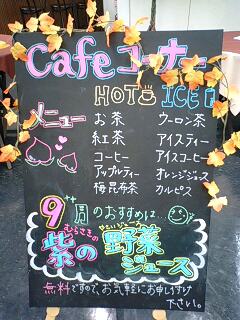 Cafeコーナー
メニュー
HOT
お茶
紅茶
コーヒー
アップルティー
梅昆布茶
ICE
ウーロン茶
アイスティー
アイスコーヒー
オレンジジュース
カルピス
9月のおすすめは…
むらさきの
紫の野菜
ジュース
無料ですので、お気軽にお申し付け
下さい。